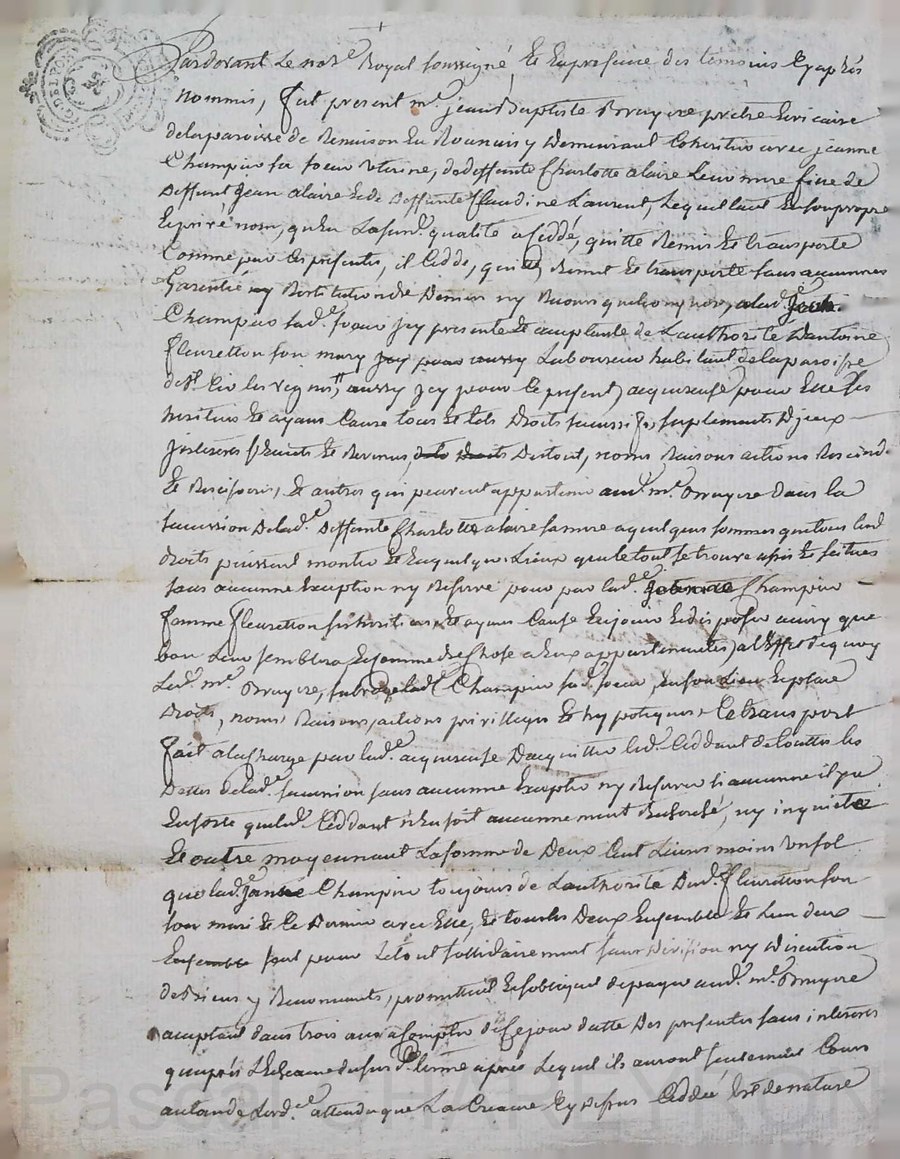 Pardevant le not.re Royal soussigné, et en presence des temoins cy après
nommés, fut present m.e jean Baptiste Bruyere pretre vicaire
de la paroisse de Renaison en Roanais y demeurant coheritier avec jeanne
Champin sa soeur uterine, de deffunte Charlotte alaire leur mere fille de
deffunt jean alaire et de deffunte Claudine Laurent, lequel tant en son propre
et privé nom, qu'en la susd.e qualité a ceddé, quitte remis et transporte
comme par ces presentes, il cedde, quitte, remet et transporte sans aucunnes
Garentie ny Restitution de Deniers ny
Champin lad.e soeur icy presente et acceptante de l'authorité d'antoine
fleuretton son mary laboureur habitant de la paroisse
de S.t aussy icy pour ce present, acquereuse pour elle ses
heritiers et ayans cause tous et tels droits successifs, suplements d'iceux
interets fruits et Revenus, Dutout, noms Raisons actions Rescind.
et Rescisoires, et autres qui peuvent appartenir aud. m.e Bruyere dans la
succession de lad.e deffunte Charlotte alaire sa mere a quelques sommes que tous lesd
droits puissent monter et en quelques lieux que le tout se trouve assis et scitués
sans aucunne exception ny Reserve pour par lad.e Champin
femme fleuretton ses heritiers et ayans cause en jouir et disposer ainsy que
bon leur semblera et comme de chose a eux appartenantes, a l'effet de quoy
led. m.e Bruyere, subroge lad.e Champin sad. soeur, en son lieu et place
Droits, noms Raisons, actions privilleges et hypoteques. le transport
fait a la charge par lad.e acquereuse D'acquitter led. ceddant de touttes les
Dettes de lad.e succession sans aucunne exception ny Reserve si aucunne il y a
en sorte que led. ceddant n'en soit aucunnement Recherché, ny inquieté
et outre moyennant la somme de Deux Cent Livres moins un sol
que lad.e janne Champin toujours de l'authorité Dud. fleuretton son
son mari et ce dernier avec elle, et tous les Deux ensemble et l'un deux
seul pour le tout sollidairement sans Division ny Discution
de Biens y Renonceants, promettent et s'obligent de payer aud. m.e Bruyere
acceptant dans trois ans a compter de ce jour datte des presentes sans interets
qu'après l'echeance du susd. terme après lequel ils auront seulement cours
au taux de l'ord.ce attendu que la Creance cy dessus ceddée est de nature